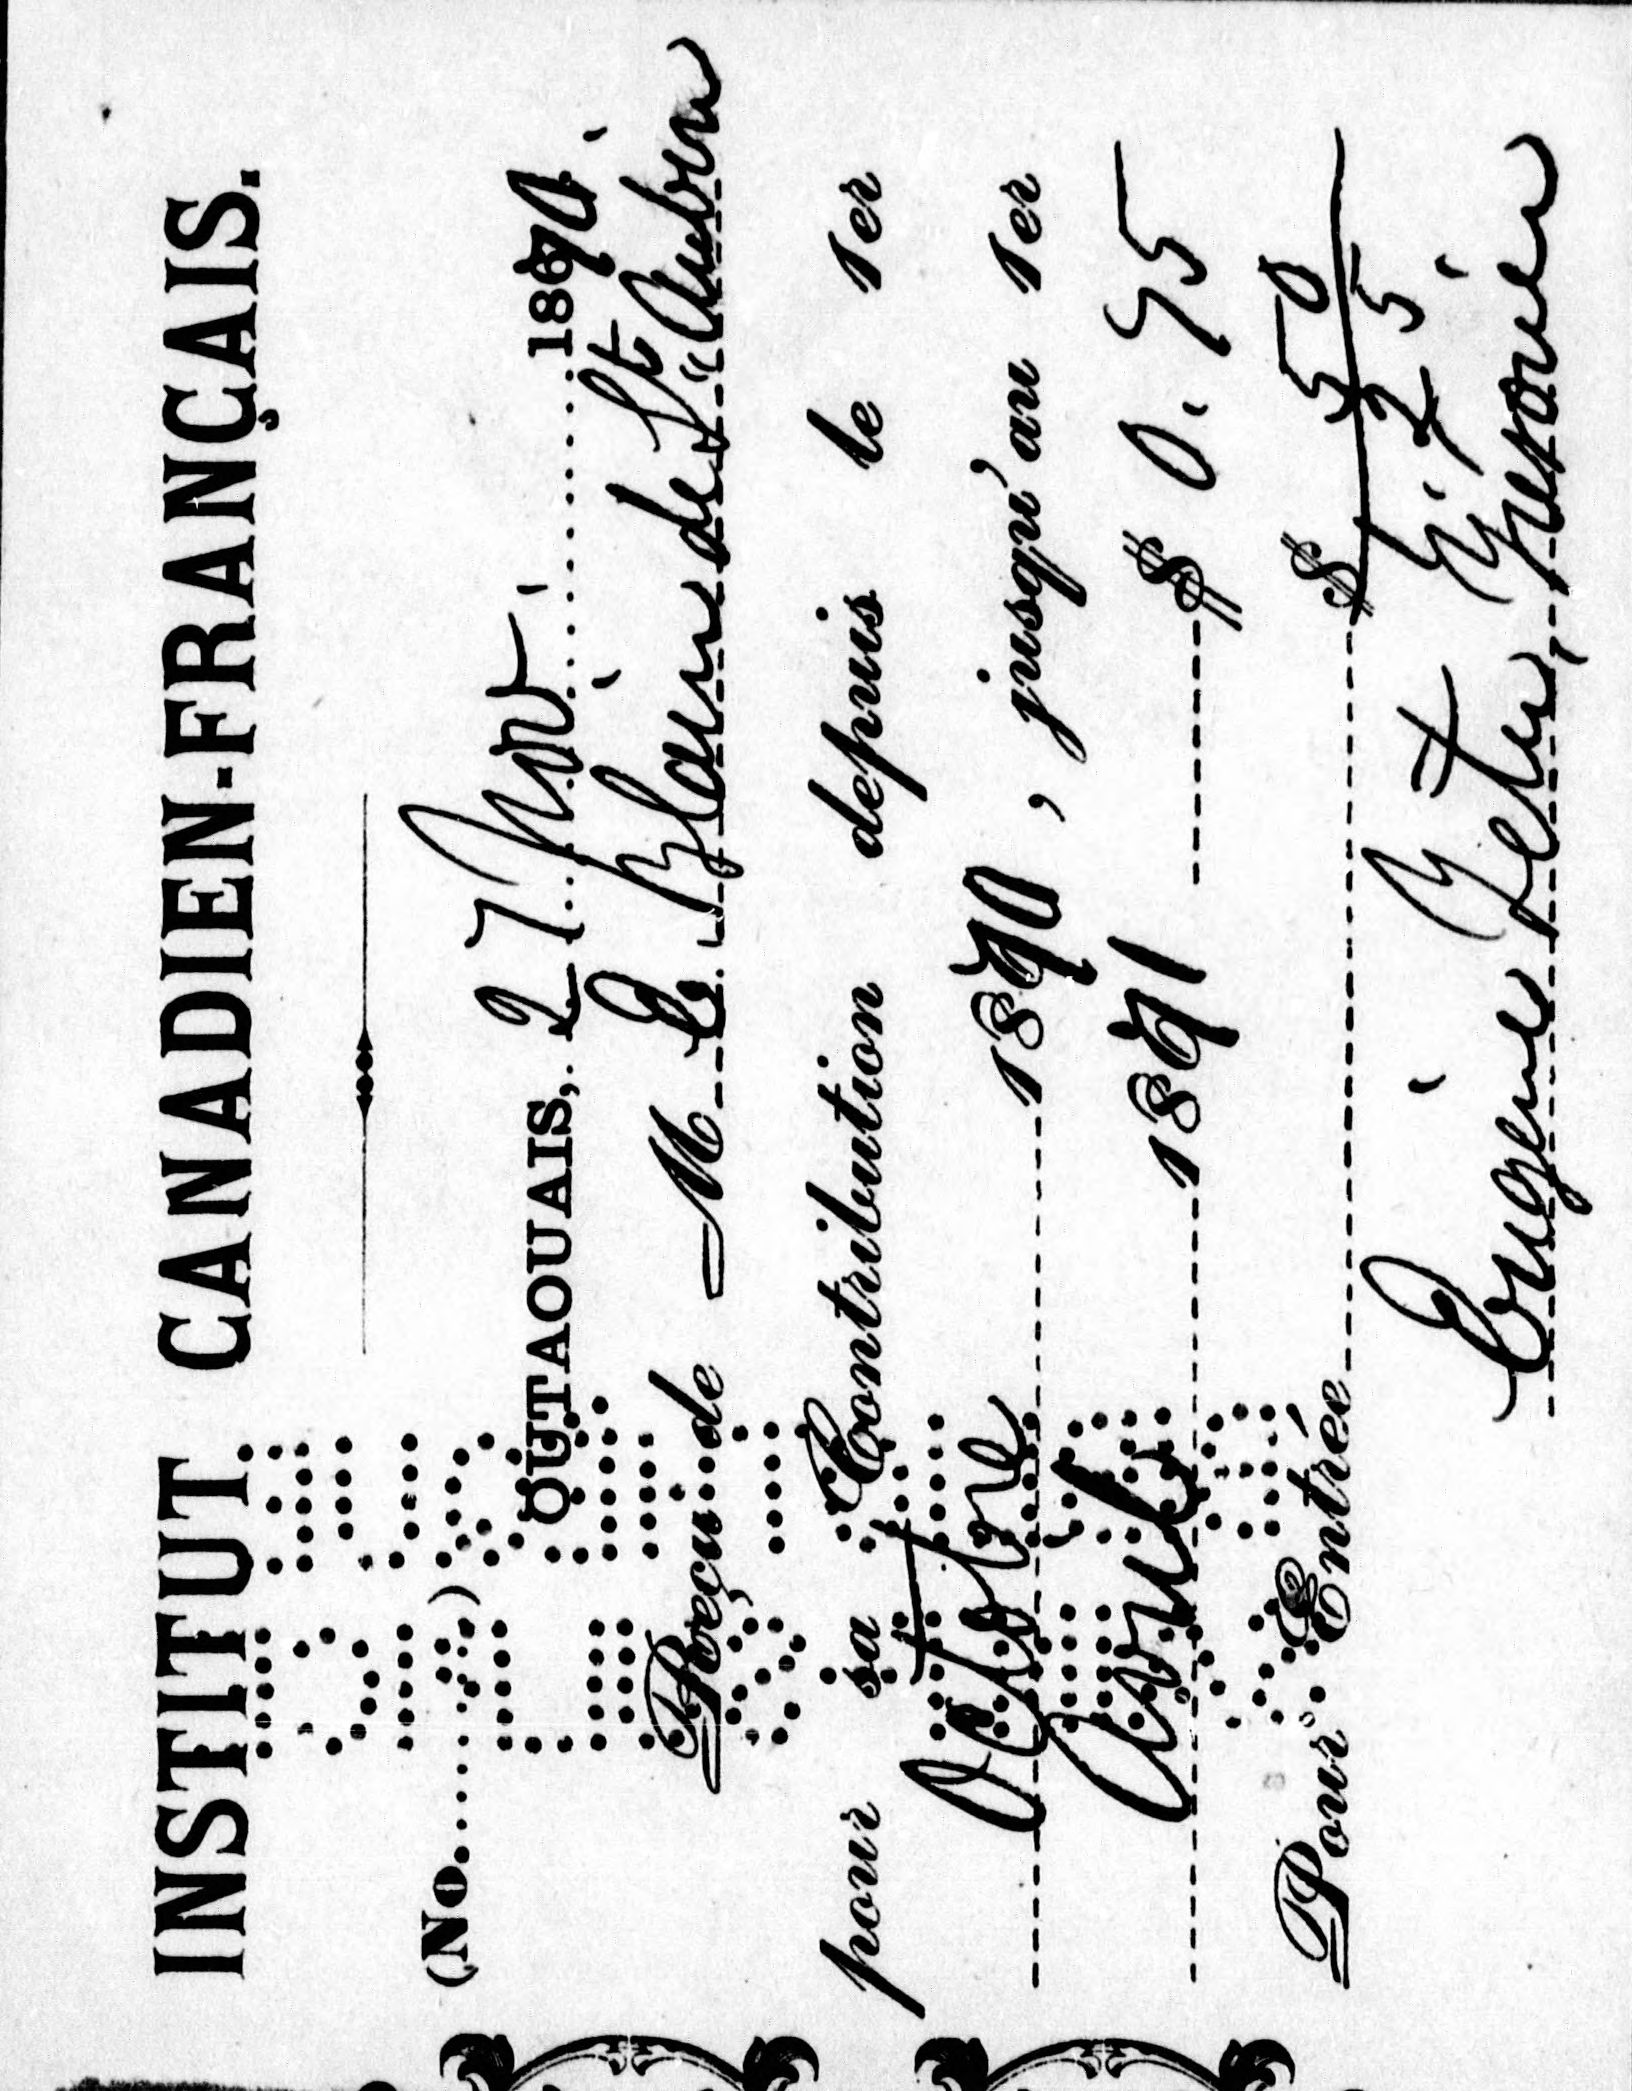 INSTITUT CANADIEN-FRANÇAIS.
(No..........)
OUTAOUAIS, 27 Nov. 1870.
Reçu de M E. Blain de St Aubin
pour sa Contribution depuis le 1er
Octobre 1870, jusqu'au 1er
Avril 1871 $ 0.75
Pour Entrée $ 50
1.25
Eugène